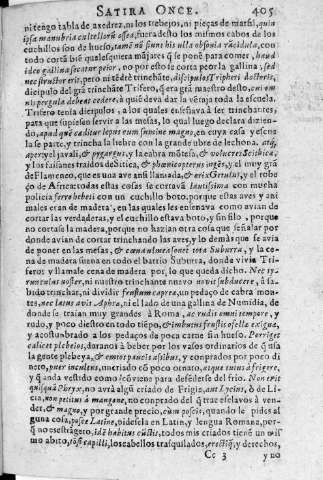 SATIRA ONCE. 405
ni tengo tabla de axedrez, ni los trebejos, ni pieças de marfil, quin
ipsa manubria cultellorũ ossea, fuera desto los mismos cabos de los
cuchillos son de hueso, tamẽ nũ sunt his ulla obsonia rãcidula, con
todo cortã biẽ qualesquiera mãjares q̃ se ponẽ para comer, haud
ideo gallina secatur peior, no por esto se corta peor la gallina, sed
nec structor erit, pero ni tẽdrè trinchãte, discipulos Tripheri doctoris,
dicipulo del grã trinchãte Trifero, q̃ era grã maestro desto, cui om
nis pergula debeat cedere, a quiẽ deva dar la vẽtaja toda la escuela.
Trifero tenia dicipulos, a los quales enseñava à ser trinchantes,
para que supiesen servir a las mesas, lo qual luego declara dizien-
do, apud quẽ cæditur lepus cum sumine magno, en cuya casa y escue
la se parte, y trincha la liebre con la grande ubre de lechona. atq;
aper, y el javali, & pygargus, y la cabra mõtesa, & volucres Scithica,
y los faisanes traidos de Scitica, & phœnicopterus ingẽs, y el muy grã
de Flamenco, que es una ave ansi llamada, & orix Getulus, y el robe
ço de Africa: todas estas cosas se cortavã lautissima con mucha
policia ferro hebeti con un cuchillo boto, porque estas aves y ani
males eran de madera, en las quales les enseñava como avian de
cortar las verdaderas, y el cuchillo estava boto, y sin filo, porque
no cortase la madera, porque no hazian otra cosa que señalar por
donde avian de cortar trinchando las aves, y lo demàs que se avia
de poner en las mesas, & cœna ulmea sonet tota Suburra, y la ce
na de madera suena en todo el barrio Suburra, donde vivia Tri
feros y llamale cena de madera por lo que queda dicho. Nec
tyrunculus noster, ni nuestro trinchante nuevo novit subducere, à sa-
bido trinchar, ni dividir frustum capreæ, un pedaço de cabra mon
tes, nec latus avis Aphræ, ni el lado de una gallina de Numidia, de
donde se traian muy grandes à Roma, ac rudis omni tempore, y
rudo, y poco diestro en todo tiẽpo, & imbutus frustis ofellæ exiguæ,
y acostunbrado a los pedaços de poca carne sin hueso. Porriget
calices plebeios, daranos à beber por los vasos ordinarios de q̃ usa
la gente plebeya, & emtos paucis assibus, y conprados por poco di
nero, puer incultus, un criado cõ poco ornato, atque tutus à frigore,
y q̃ anda vestido como cõviene para defẽderse del frio. Non erit
quisquã Phryx, no avrà algũ criado de Frigia, aut Lycius, ò de Li-
cia, non petitus à mangone, no conprado del q̃ trae esclavos à ven-
der, & magno, y por grande precio, cũm posces, quando le pidas al
guna cosa, posce Latine, pideselo en Latin, y lengua Romana, por-
q̃ no es estrãgero, idẽ habitus cũctis, todos mis criados tienẽ un mis
mo abito, tõsi capilli, los cabellos trasquilados, rectiq;, y derechos,
Cc 3 y no